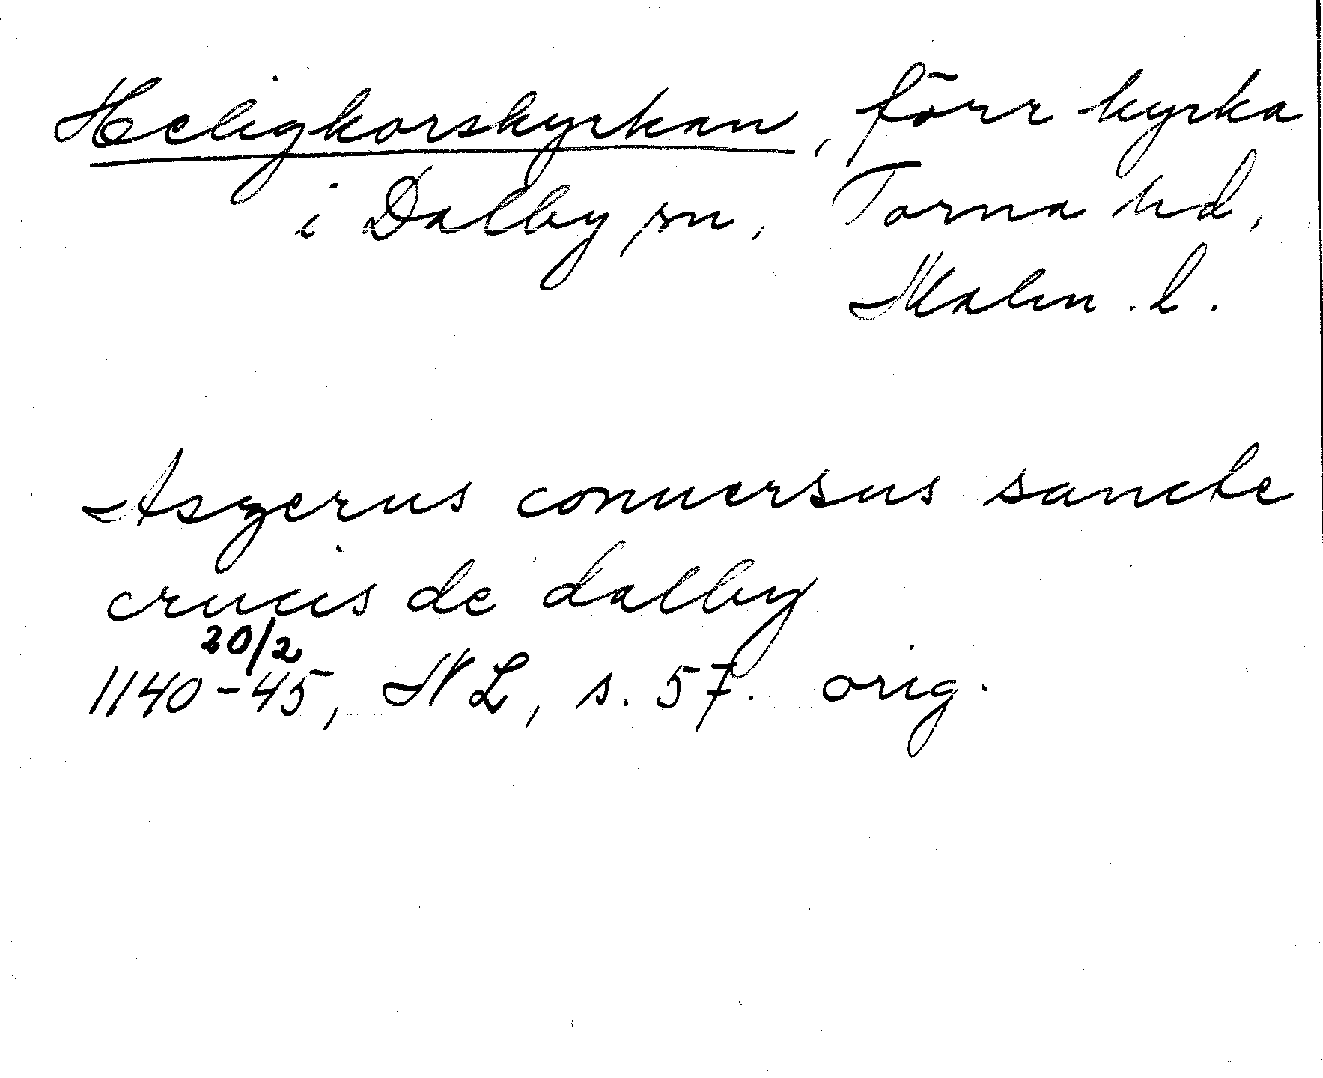 Heligkorskyrkan, förr kyrka
i Dalby sn, Torna hd,
Malm. l.
Aszerus conuersus sancte
crucis de dalby
20/2
1140-45, NL, s. 57. orig.